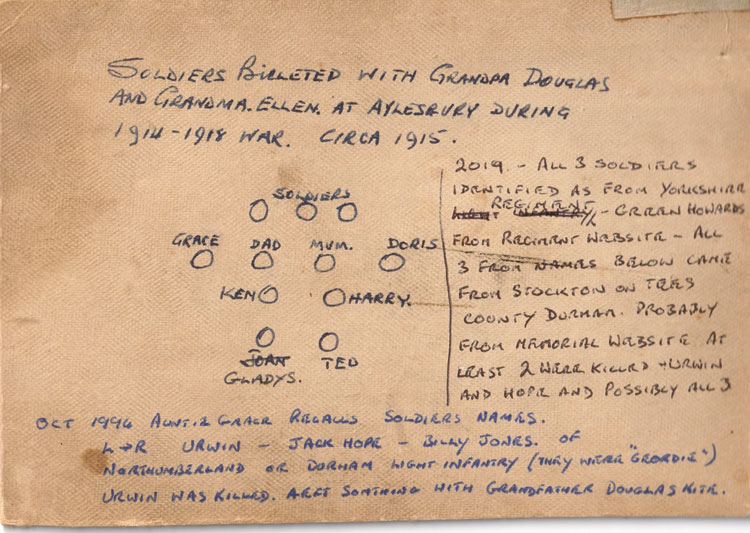 SOLDIERS BILLETED WITH GRANDPA DOUGLAS
AND GRANDMA. ELLEN. AT AYLESBURY DURING
1914-1918 WAR. CIRCA 1915.
SOLDIERS
GRACE DAD MUM. DORIS
KEN HARRY.
JOAN TED
GLADYS.
2019. - ALL 3 SOLDIERS
IDENTIFIED AS FROM YORKSHIRE
REGIMENT
LIGHT INFANTRY - GREEN HOWARDS
FROM REGIMENT WEBSITE - ALL
3 FROM NAMES BELOW CAME
FROM STOCKTON ON TEES
COUNTY DURHAM. PROBABLY
FROM MEMORIAL WEBSITE. AT
LEAST 2 WERE KILLED - URWIN
AND HOPE AND POSSIBLY ALL 3
OCT 1994 AUNTIE GRACE RECALLS SOLDIERS NAMES.
L→R URWIN - JACK HOPE - BILLY JONES. OF
NORTHUMBERLAND OR DURHAM LIGHT INFANTRY (THEY WERE "GEORDIE")
URWIN WAS KILLED. SOMTHING WITH GRANDFATHER DOUGLAS KITE.